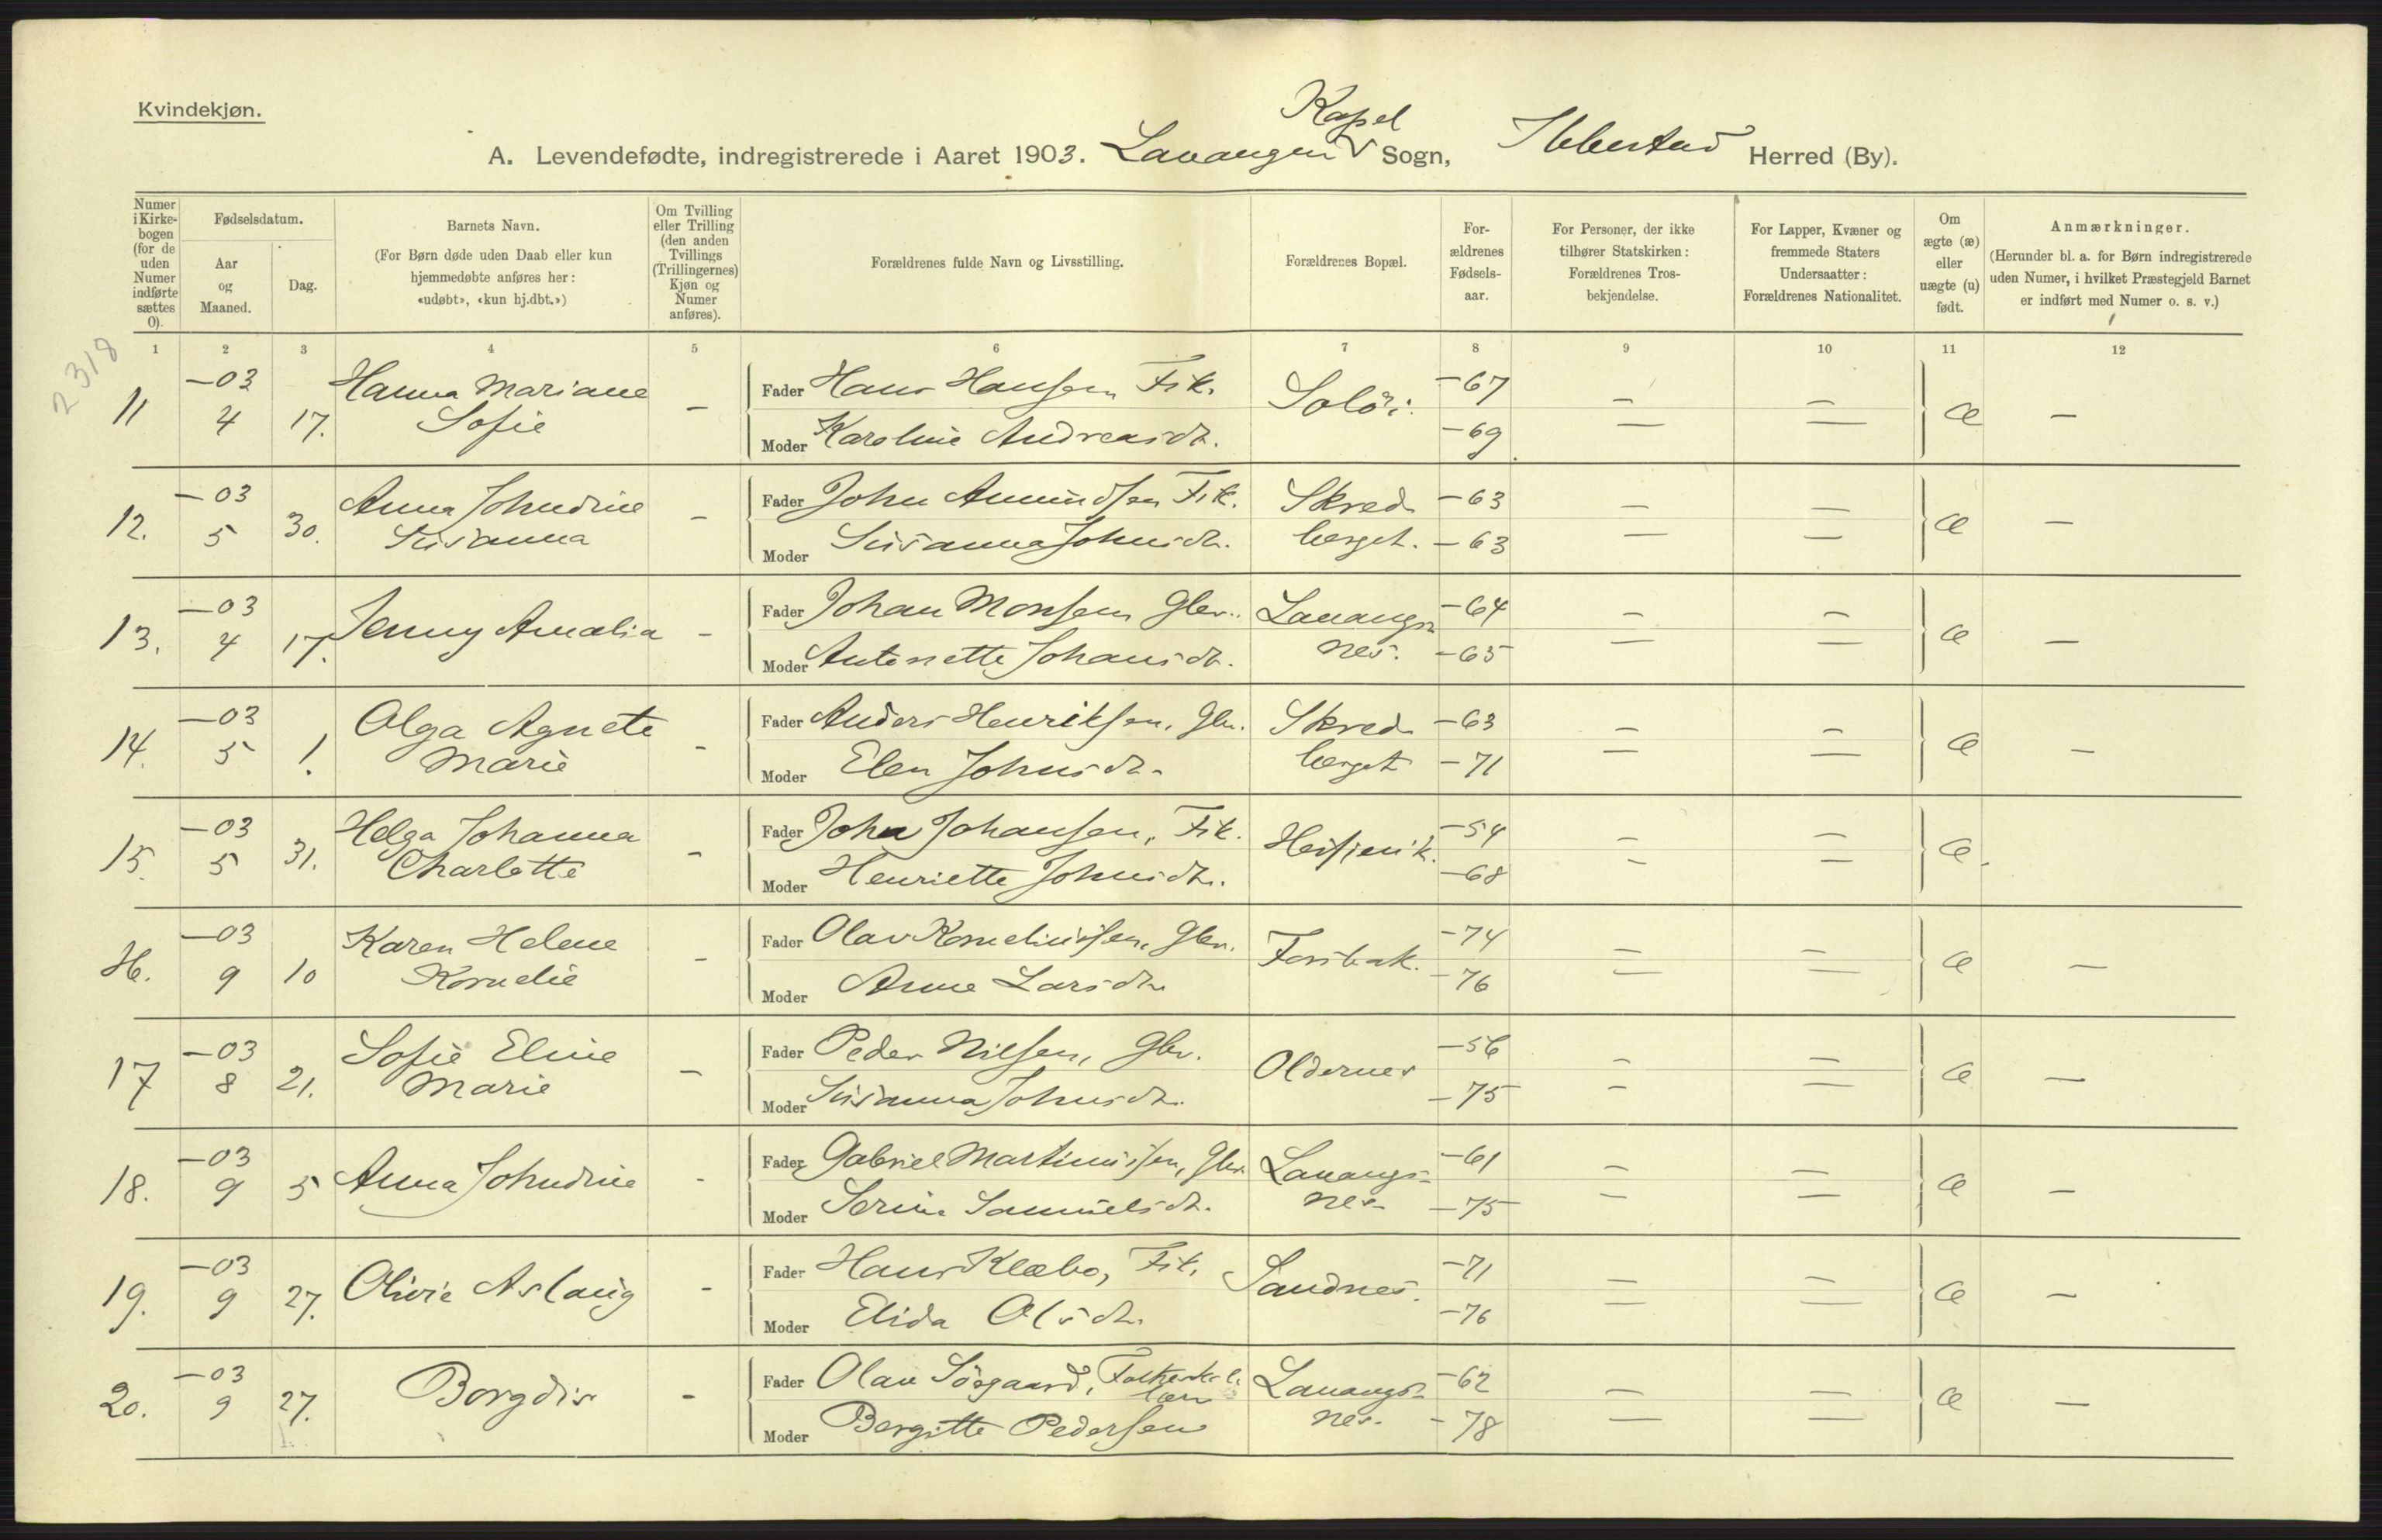 Kvindekjøn.
Kapel
A. Levendefødte, indregistrerede i Aaret 1903. Lavangen V Sogn, Ibbestad Herred (By).
Numer i Kirkebogen (for de uden Numer indførte sættes 0).
Fødselsdatum.
Aar og Maaned.
Dag.
Barnets Navn.
(For Børn døde uden Daab eller kun hjemmedøbte anføres her: «udøbt», «kun hj.dbt.»)
Om Tvilling eller Trilling (den anden Tvillings (Trillingernes) Kjøn og Numer anføres).
Forældrenes fulde Navn og Livsstilling.
Forældrenes Bopæl.
Forældrenes Fødselsaar.
For Personer, der ikke tilhører Statskirken: Forældrenes Trosbekjendelse.
For Lapper, Kvæner og fremmede Staters Undersaatter: Forældrenes Nationalitet.
Om ægte (æ) eller uægte (u) født.
Anmærkninger.
(Herunder bl. a. for Børn indregistrerede uden Numer, i hvilket Præstegjeld Barnet er indført med Numer o. s. v.)
1 2 3 4 5 6 7 8 9 10 11 12
2318
11 –03 4 17. Hanna Mariane Sofie – Fader Hans Hansen Fik. Solöi. –67 – – æ –
Moder Karoline Andreasdt. –69 – –
12. –03 5 30. Anna Johndine Susanna – Fader John Amundsen Fik. Skredberget. –63 – – æ –
Moder Susanna Johnsdt. –63 – –
13. –03 4 17. Jenny Amalia – Fader Johan Monsen Gbr. Lavangsnes. –64 – – æ –
Moder Antonette Johansdt. –65 – –
14. –03 5 1. Olga Agnete Marie – Fader Anders Henriksen, Gbr. Skredberget –63 – – æ –
Moder Elen Johnsdt. –71 – –
15. –03 5 31. Helga Johanna Charlotte – Fader John Johansen, Fik. –54 – – æ.
Moder Henriette Johnsdt. –68 – –
16. –03 9 10 Karen Helene Kornelie – Fader Olav Korneliussen, Gbr. Fosbak. –74 – – æ –
Moder Anne Larsdt. –76 – –
17 –03 8 21. Sofie Eline Marie – Fader Peder Nilsen, Gbr. Oldernes –56 – – æ –
Moder Susanna Johnsdt. –75 – –
18. –03 9 5 Anna Johndine - Fader Gabriel Martinussen, Gbr. Lavangsnes –61 – – æ –
Moder Serine Samuelsdt. –75 – –
19. –03 9 27. Olivie Aslaug - Fader Hans Klæbo, Fik. Sandnes. –71 – – æ –
Moder Elida Olsdt. –76 – –
20. –03 9 27. Borgdis - Fader Olav Sörgaard, Lavangsnes. –62 – – æ –
Moder Bergitte Pedersen –78 – –